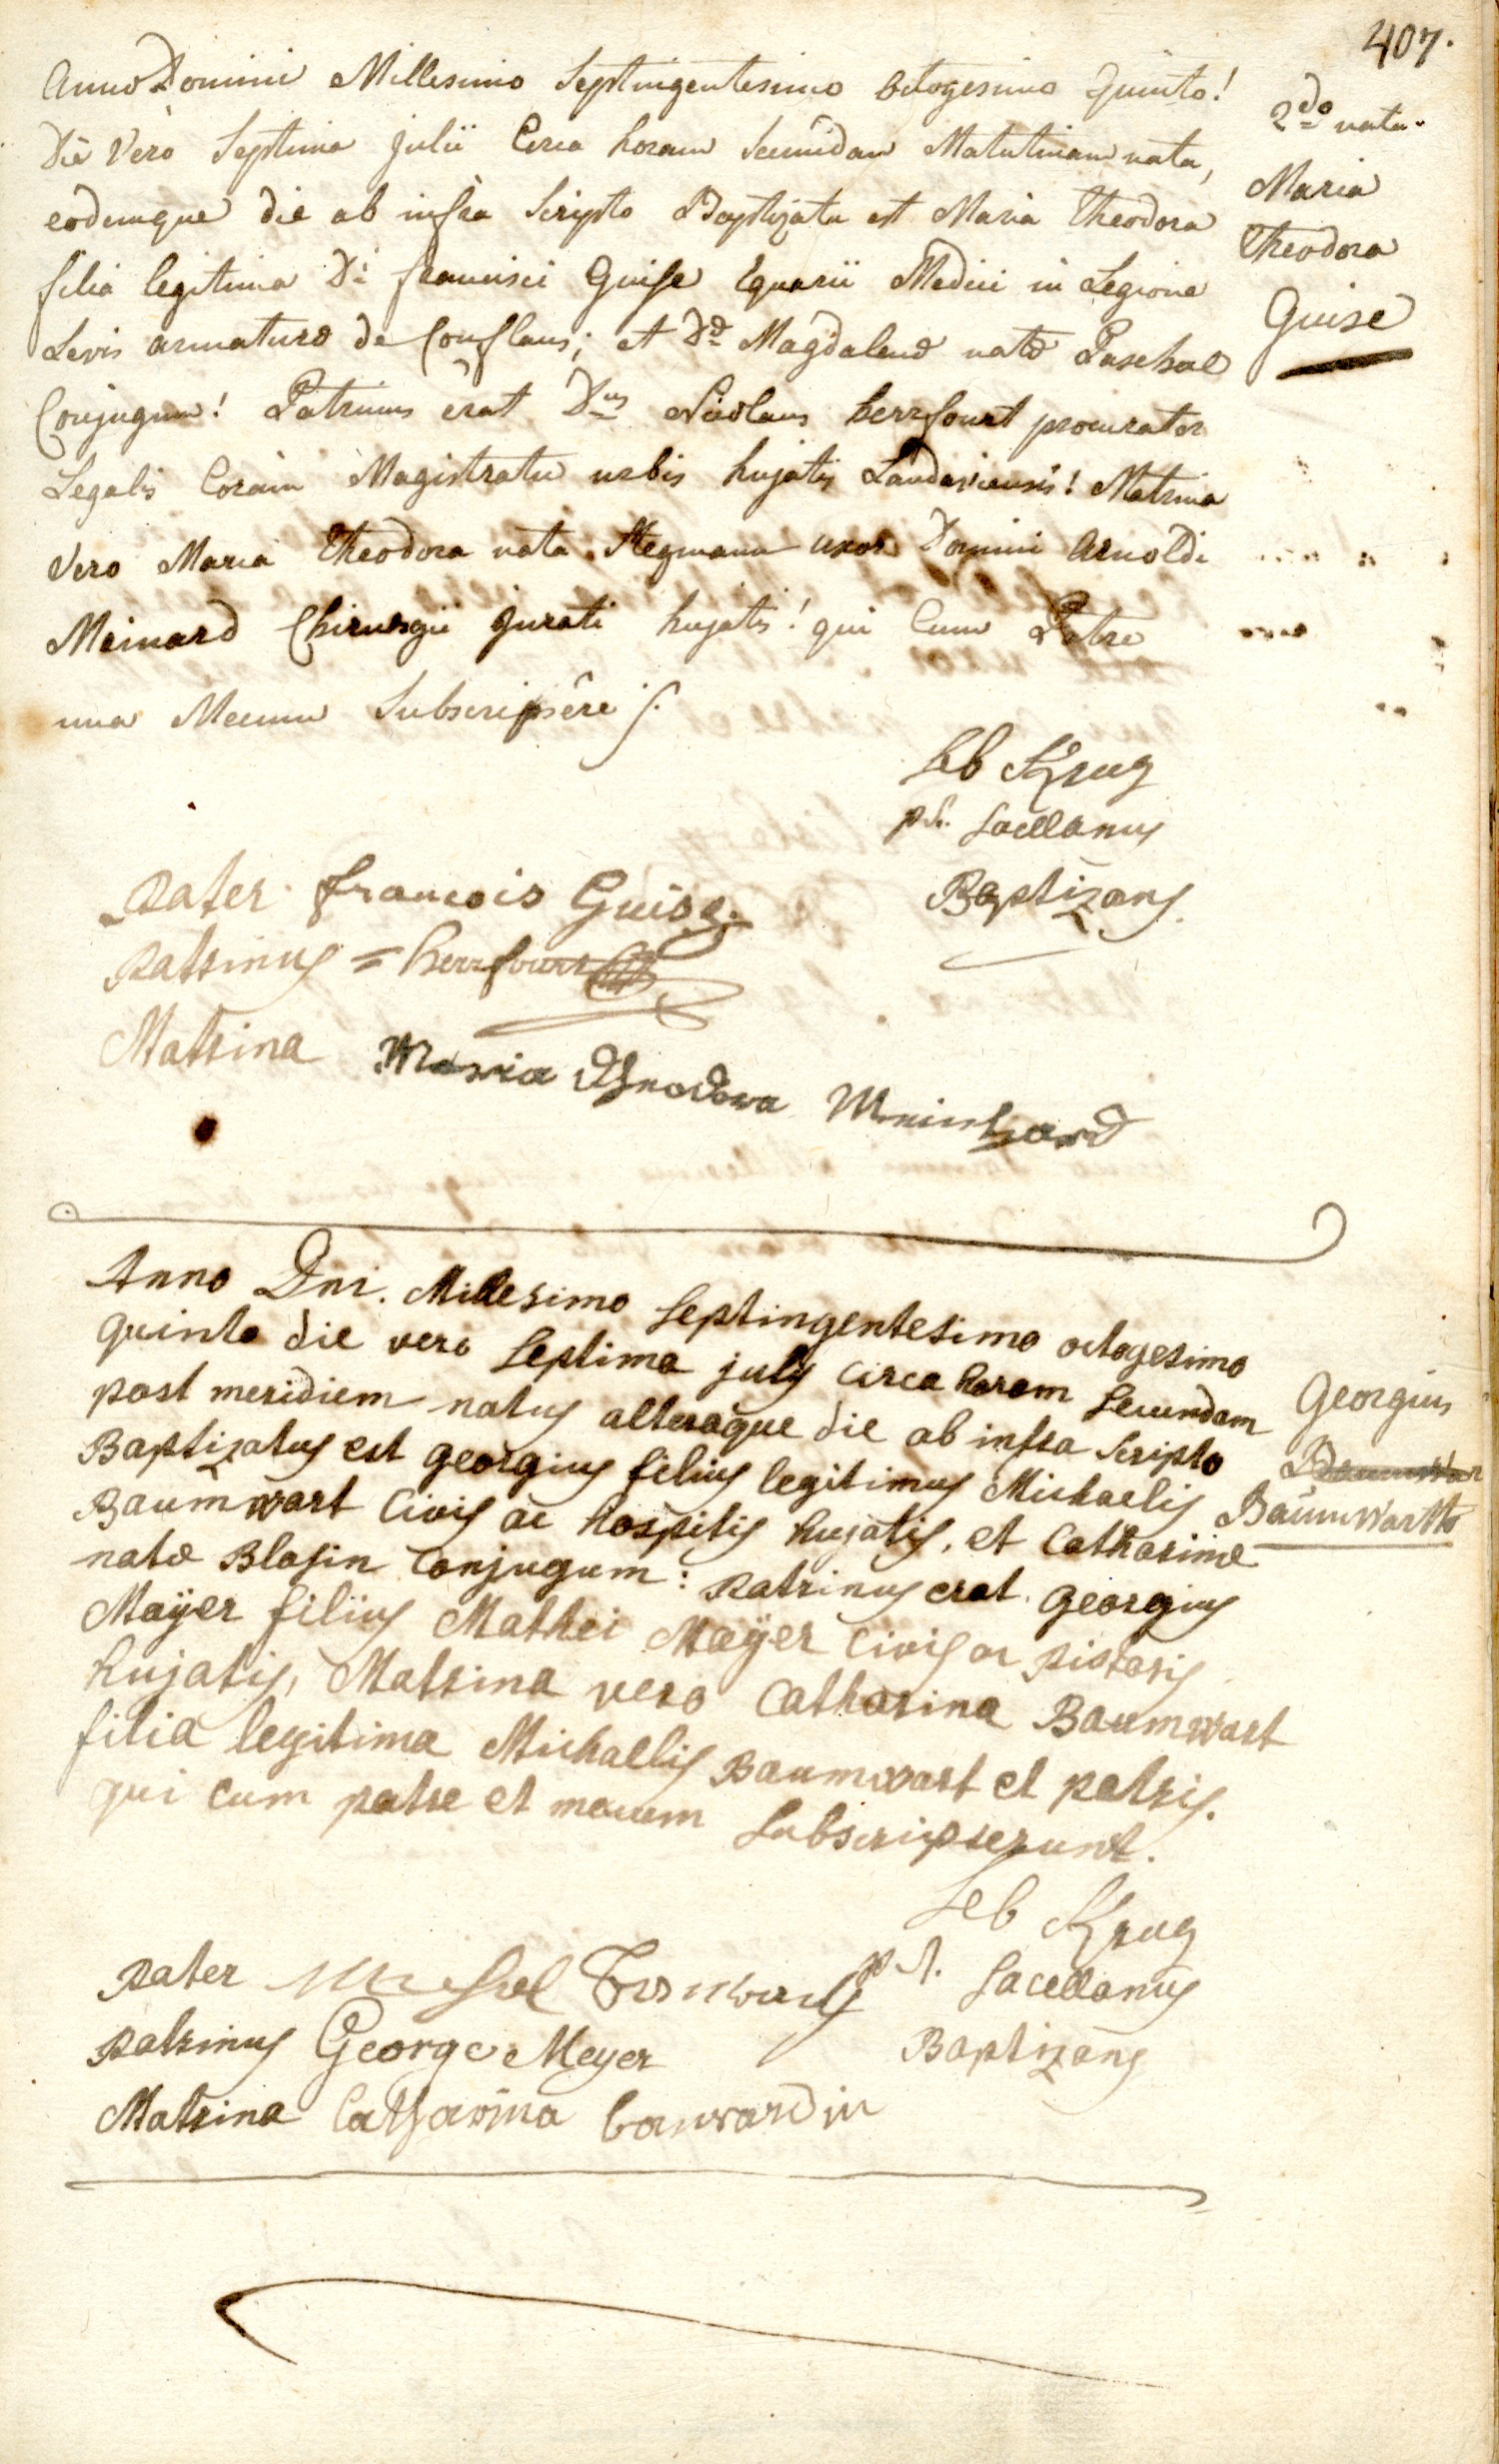 407.
Anno Domini Millesimo Septingentesimo octogesimo Quinto!
Die Vero Septima julii Circa horam Secundam Matutinam nata,
eodemque die ab infra Scripto Baptizata est Maria Theodora
filia legitima Di francisci Guise Equarii Medici in Legione
Levis armaturæ de Conflans; et Dæ Magdalenæ natæ Paschal
Conjugum! Patrinus erat Dus Nicolaus herrfourt procurator
Legalis Coram Magistratu urbis hujatis Landaviensis! Matrina
Vero Maria Theodora nata Stegmann uxor Domini Arnoldi
Meinard Chirurgii Jurati hujatis! qui Cum Patre
una Mecum Subscripsêre
2do nata.
Maria
Theodora
Guise
Seb Krug
p.t. Sacellanus
Baptizans.
Pater francois Guise.
Patrinus = herrfourt
Matrina Maria Theodora Meinhard
Anno Dni. Millesimo Septingentesimo octogesimo
quinto die vero Septima julÿ circa horam Secundam
post meridiem natus alteraque die ab infra Scripto
Baptizatus est georgius filius legitimus Michaelis
Baumwart Civis ac hospitis hujatis, et Catharinæ
natæ Blasin conjugum: patrinus erat georgius
Maÿer filius Mathei Maÿer civis ac pistoris
hujatis, Matrina vero Catharina Baumwart
filia legitima Michaelis Baumwart et patris.
qui cum patre et mecum Subscripserunt.
Georgius
Baumwartt
Seb Krug
p.t. Sacellanus
Baptizans
pater
patrinus George Meyer
Matrina Catharina banwardin